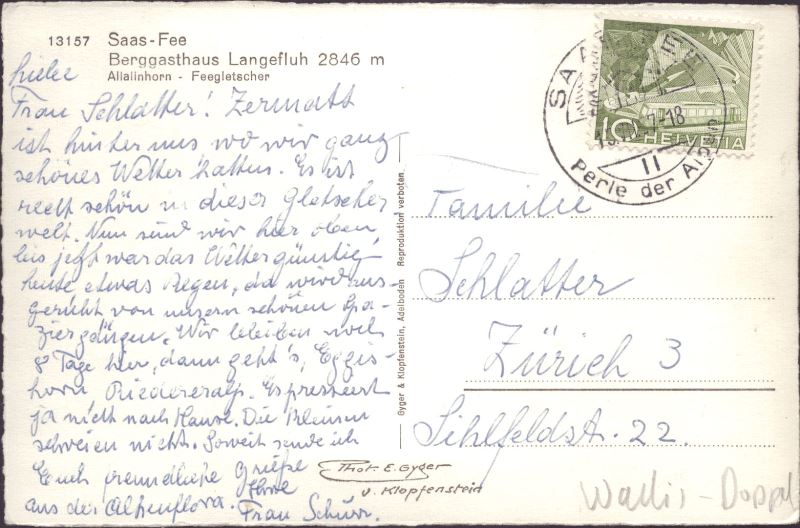 13157 Saas-Fee
Berggasthaus Langefluh 2846 m
Allalinhorn - Feegletscher
Frau Schlatter! Zermatt
ist hinter uns wo wir ganz
schönes Wetter hatten. Es ist
recht schön in dieser Gletscher
welt. Nun sind wir hier oben
bis jetzt war das Wetter günstig
heute etwas Regen, da wird aus-
geruht von unsern schönen Spa-
ziergängen. Wir bleiben noch
8 Tage hier, dann geht's, Eggis-
horn Riederalp. Es pressiert
ja nicht nach Hause. Die Kleinen
schreien nicht. Soweit sende ich
Euch freundliche Grüsse
aus der Alpenflora. Frau Schurr.
Gyger & Klopfenstein, Adelboden Reproduktion verboten.
Phot. E. Gyger
v. Klopfenstein
SAAS-FEE
-18
II
Perle der Alpen
10 HELVETIA
Familie
Schlatter
Zürich 3
Sihlfeldst. 22.
Wallis - Doppel